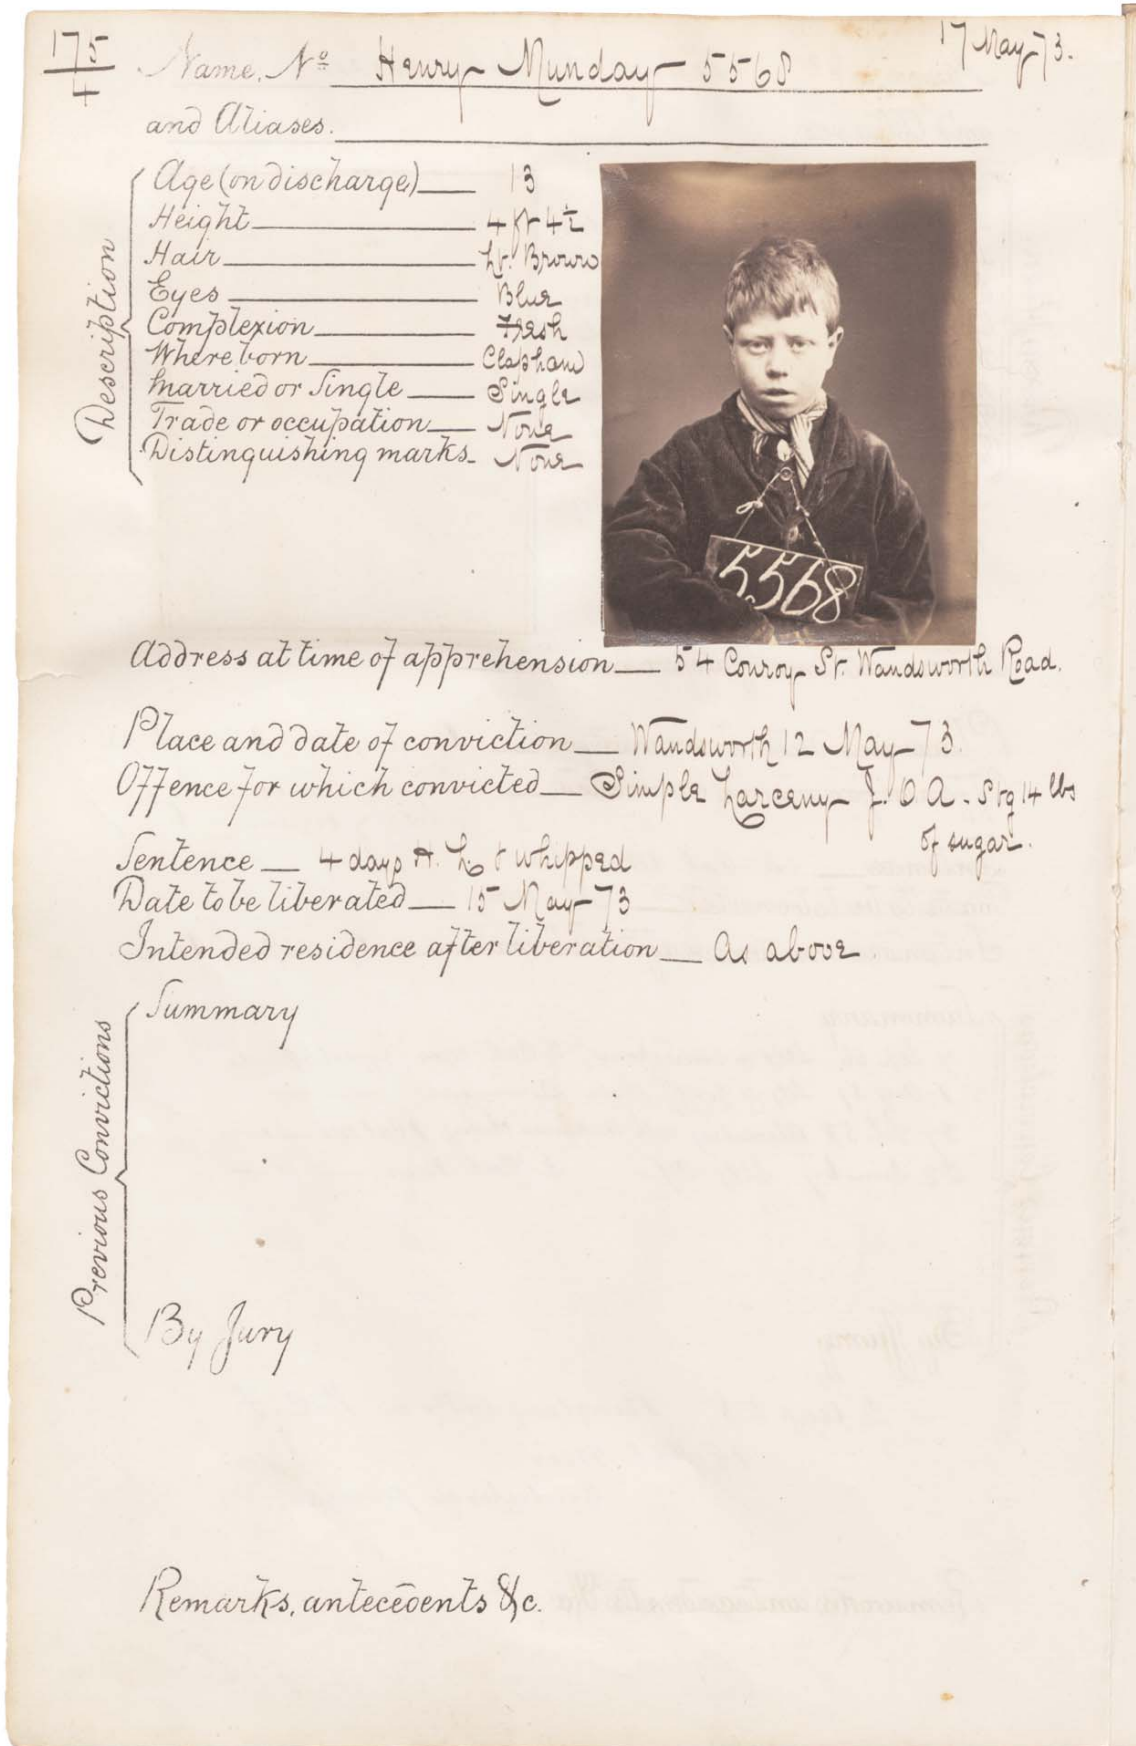 175
4
Name, Nº Henry Munday 5568
17 May 73.
and Aliases.
Description
Age (on discharge) 13
Height 4 ft 4½
Hair Lt. Brown
Eyes Blue
Complexion Fresh
Where born Clapham
Married or Single Single
Trade or occupation None
Distinguishing marks None
5568
Address at time of apprehension 54 Conroy St. Wandsworth Road.
Place and date of conviction Wandsworth 12 May 73.
Offence for which convicted Simple Larceny J. O A. Stg 14 lbs
of sugar.
Sentence 4 days H. L. & whipped
Date to be liberated 15 May 73
Intended residence after liberation As above
Previous Convictions
Summary
By Jury
Remarks, antecedents &c.